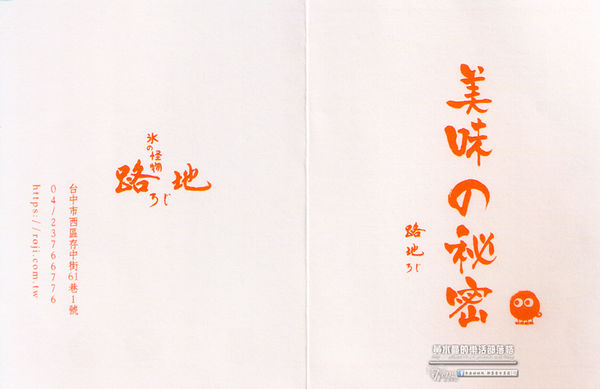 美味の秘密
路地ろじ
氷の怪物
路地
ろじ
台中市西區存中街61巷1號
04/23766776
https://roji.com.tw